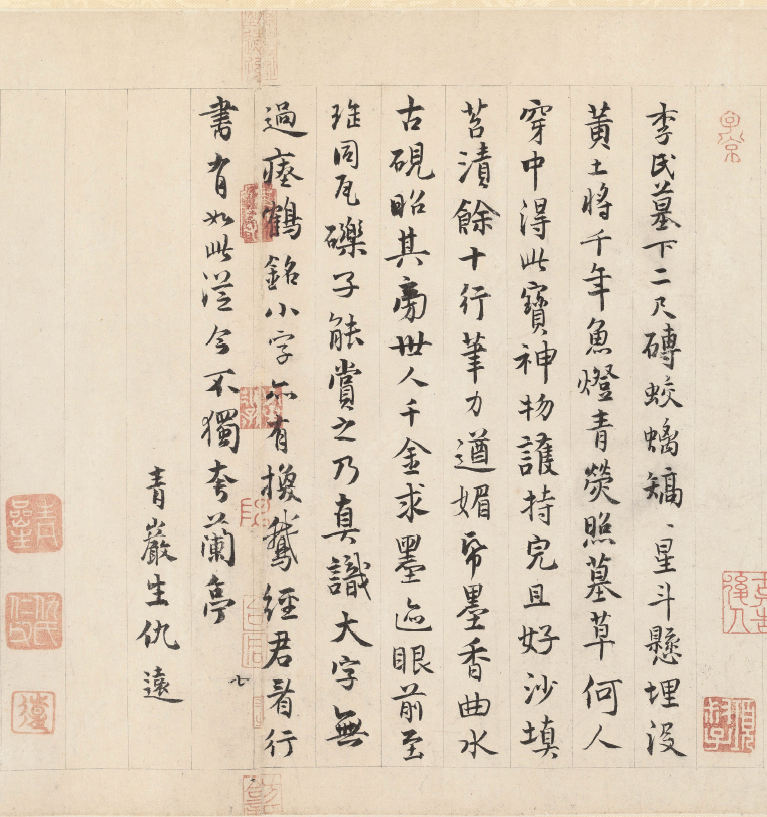 李氏墓下二尺磚蛟螭矯、星斗懸埋没
黄土將千年魚燈青熒照墓草何人
穿中得此寶神物護持完且好沙填
苔漬餘十行筆力遒媚帋墨香曲水
古硯昭其旁世人千金求墨迹眼前至
珤同瓦礫子能賞之乃真識大字無
過瘞鶴銘小字亦有換鵞經君看行
書有如此從今不獨夸蘭亭
七
青巖生仇遠
子京
仇氏仁父
遠